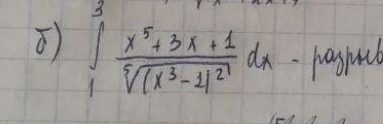 б) ∫₁³ (x⁵ + 3x + 1) / ⁵√((x³ - 1)²) dx - разрыв